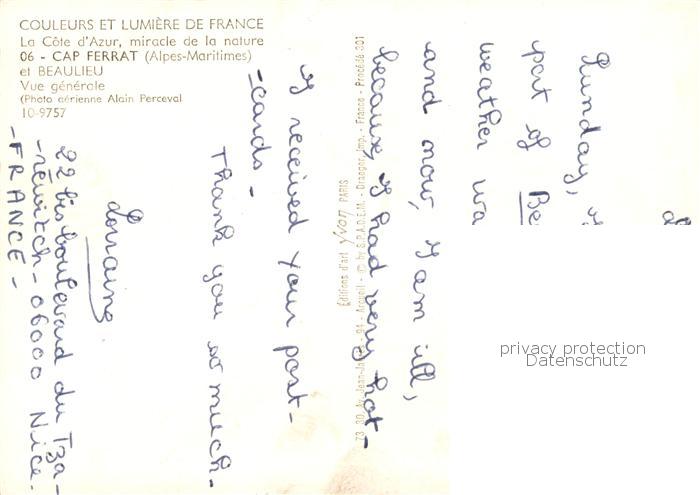 COULEURS ET LUMIÈRE DE FRANCE
La Côte d'Azur, miracle de la nature
06 - CAP FERRAT (Alpes-Maritimes)
et BEAULIEU
Vue générale
(Photo aérienne Alain Perceval
10-9757
Sunday, I
part of Be
weather wa
and now, I am ill,
because, I had very hot-
I received your post-
-cards-
Thank you so much-
Lorraine
22 bis boulevard du Tza-
-réwitch- 06000 Nice-
-FRANCE-
Éditions d'art yvon PARIS
Arcueil - © by S.P.A.D.E.M. - Draeger, Imp. - France - Procédé 301
privacy protection
Datenschutz